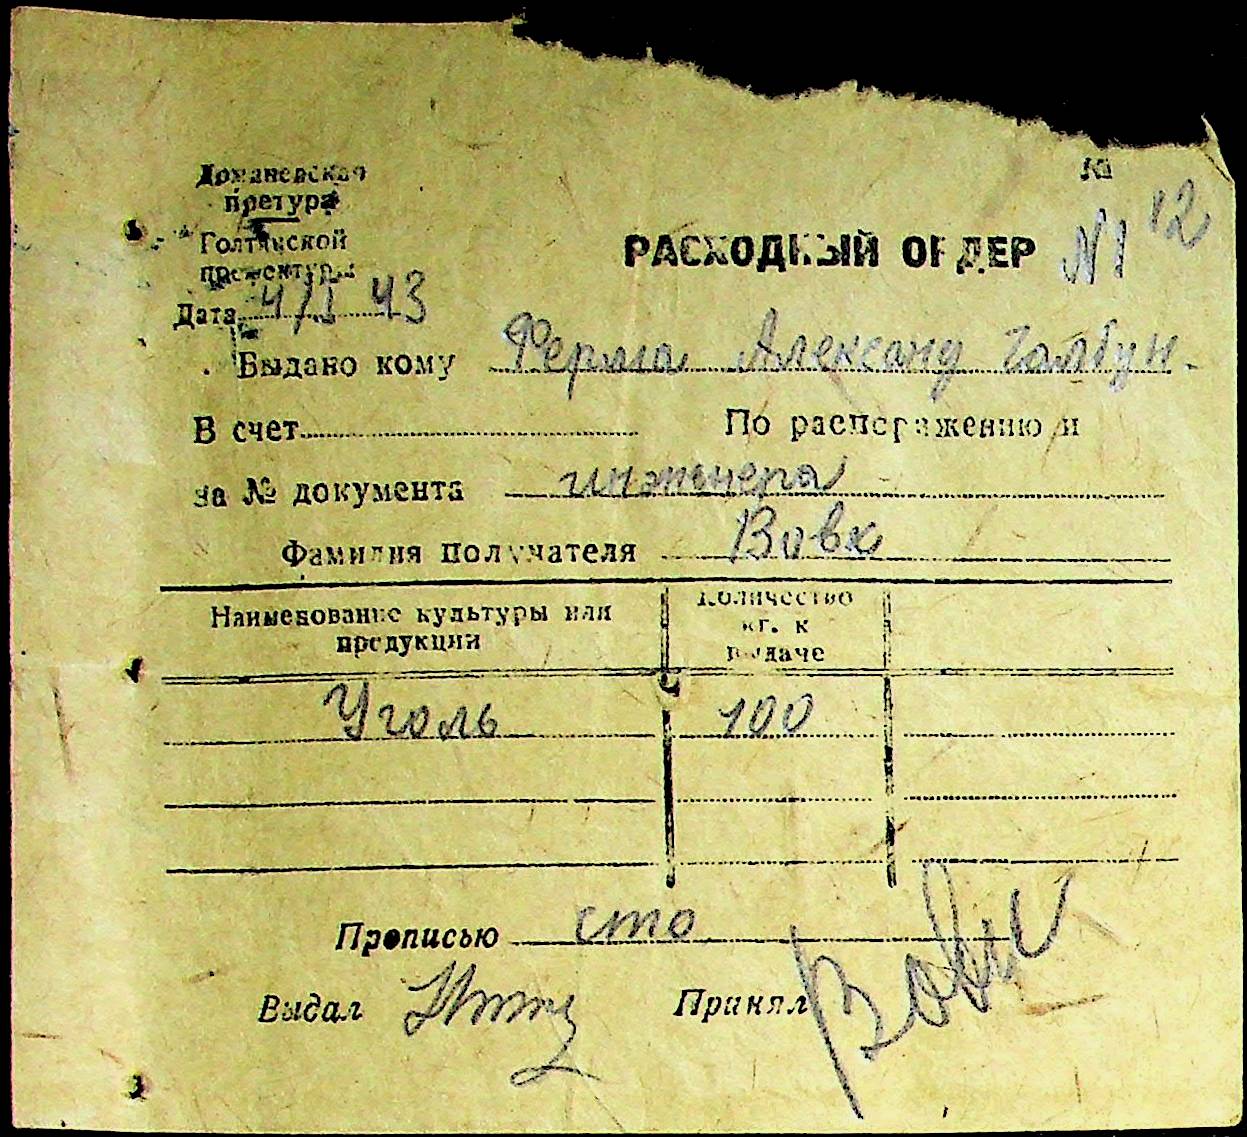 №
12
Доманевская
претура
Голтянской
префектуры
РАСХОДНЫЙ ОРДЕР №1
Дата 4/I 43
Выдано кому Ферма Александ Галбун.
В счет По распоряжению и
за № документа инженера
Фамилия получателя Вовк
Наименование культуры или продукции
Количество кг. к выдаче
Уголь 100
Прописью сто
Выдал
Принял Вовк